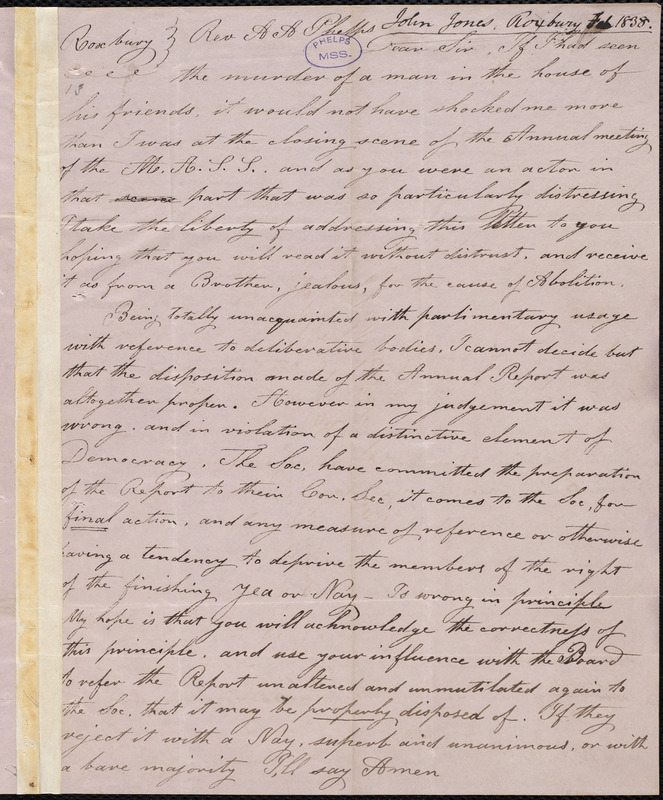 John Jones. Roxbury Feb 1838.
Roxbury } Rev A A Phelps
PHELPS MSS.
Dear Sir, If I had seen
13 the murder of a man in the house of
his friends, it would not have shocked me more
than I was at the closing scene of the Annual meeting
of the M. A. S. S. and as you were an actor in
that scene part that was so particularly distressing
I take the liberty of addressing this letter to you
hoping that you will read it without distrust, and receive
it as from a Brother, jealous, for the cause of Abolition.
Being totally unacquainted with parlimentary usage
with reference to deliberative bodies, I cannot decide but
that the disposition made of the Annual Report was
altogether proper. However in my judgement it was
wrong. and in violation of a distinctive element of
Democracy. The Soc. have committed the preparation
of the Report to their Cor. Sec, it comes to the Soc, for
final action, and any measure of reference or otherwise
having a tendency to deprive the members of the right
of the finishing Yea or Nay - Is wrong in principle
My hope is that you will acknowledge the correctness of
this principle, and use your influence with the Board
to refer the Report unaltered and unmutilated again to
the Soc. that it may be properly disposed of. If they
reject it with a Nay, superb and unanimous, or with
a bare majority I'll say Amen